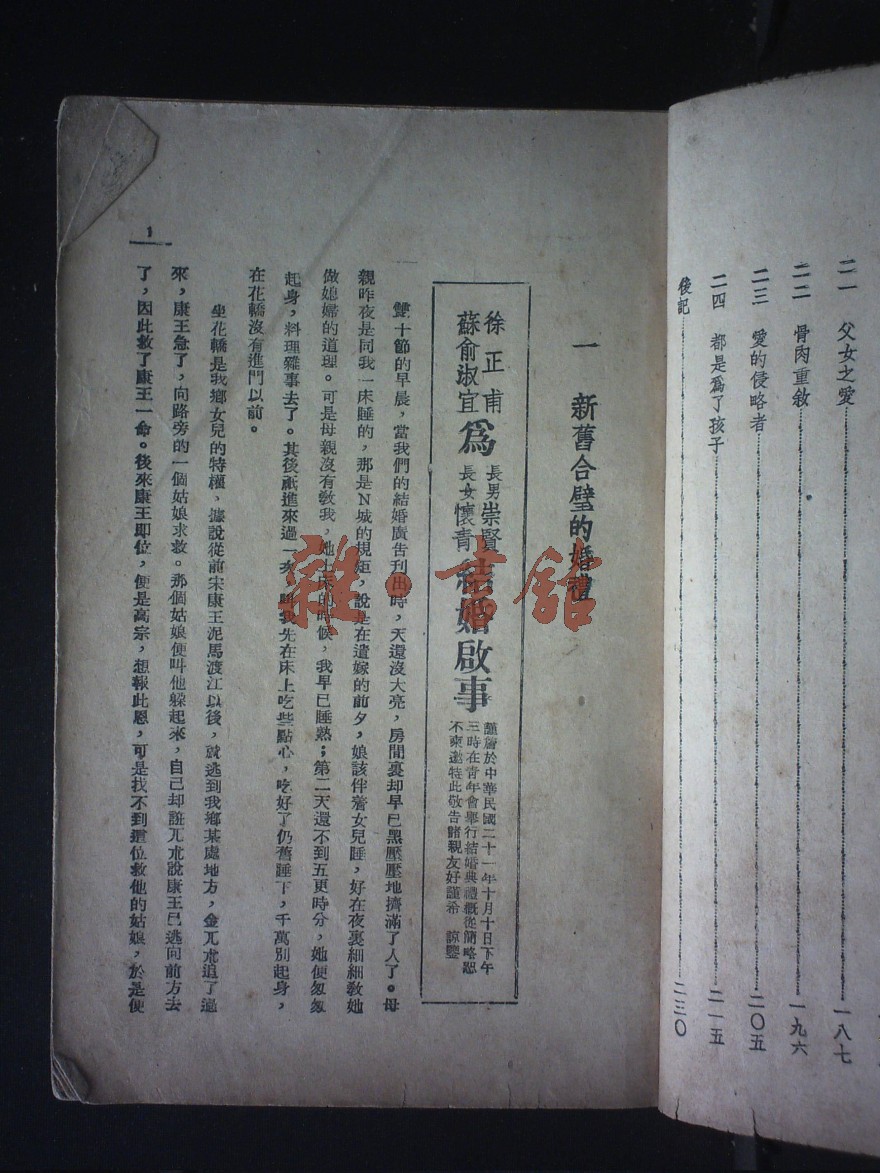 二一　父女之愛……一八七
二二　骨肉重敘……一九六
二三　愛的侵略者……二〇五
二四　都是爲了孩子……二一五
後記……二三〇
一　新舊合璧的婚禮
徐正甫
蘇俞淑宜
爲
長男崇賢
長女懷青
結婚啟事
謹詹於中華民國二十一年十月十日下午
三時在青年會舉行結婚典禮概從簡略恕
不柬邀特此敬告諸親友好謹希　諒鑒
雙十節的早晨，當我們的結婚廣告刊出時，天還沒大亮，房間裏却早已黑壓壓地擠滿了人了。母
親昨夜是同我一床睡的，那是N城的規矩，說是在遣嫁的前夕，娘該伴着女兒睡，好在夜裏細細教她
做媳婦的道理。可是母親沒有教我，她上床的時候，我早已睡熟；第二天還不到五更時分，她便匆匆
起身，料理雜事去了。其後祇進來過一次，叫我先在床上吃些點心，吃好了仍舊睡下，千萬別起身，
在花轎沒有進門以前。
坐花轎是我鄉女兒的特權，據說從前宋康王泥馬渡江以後，就逃到我鄉某處地方，金兀朮追了過
來，康王急了，向路旁的一個姑娘求救。那個姑娘便叫他躲起來，自己却誑兀朮說康王已逃向前方去
了，因此救了康王一命。後來康王即位，便是高宗，想報此恩，可是找不到這位救他的姑娘，於是便
1
雜·書館